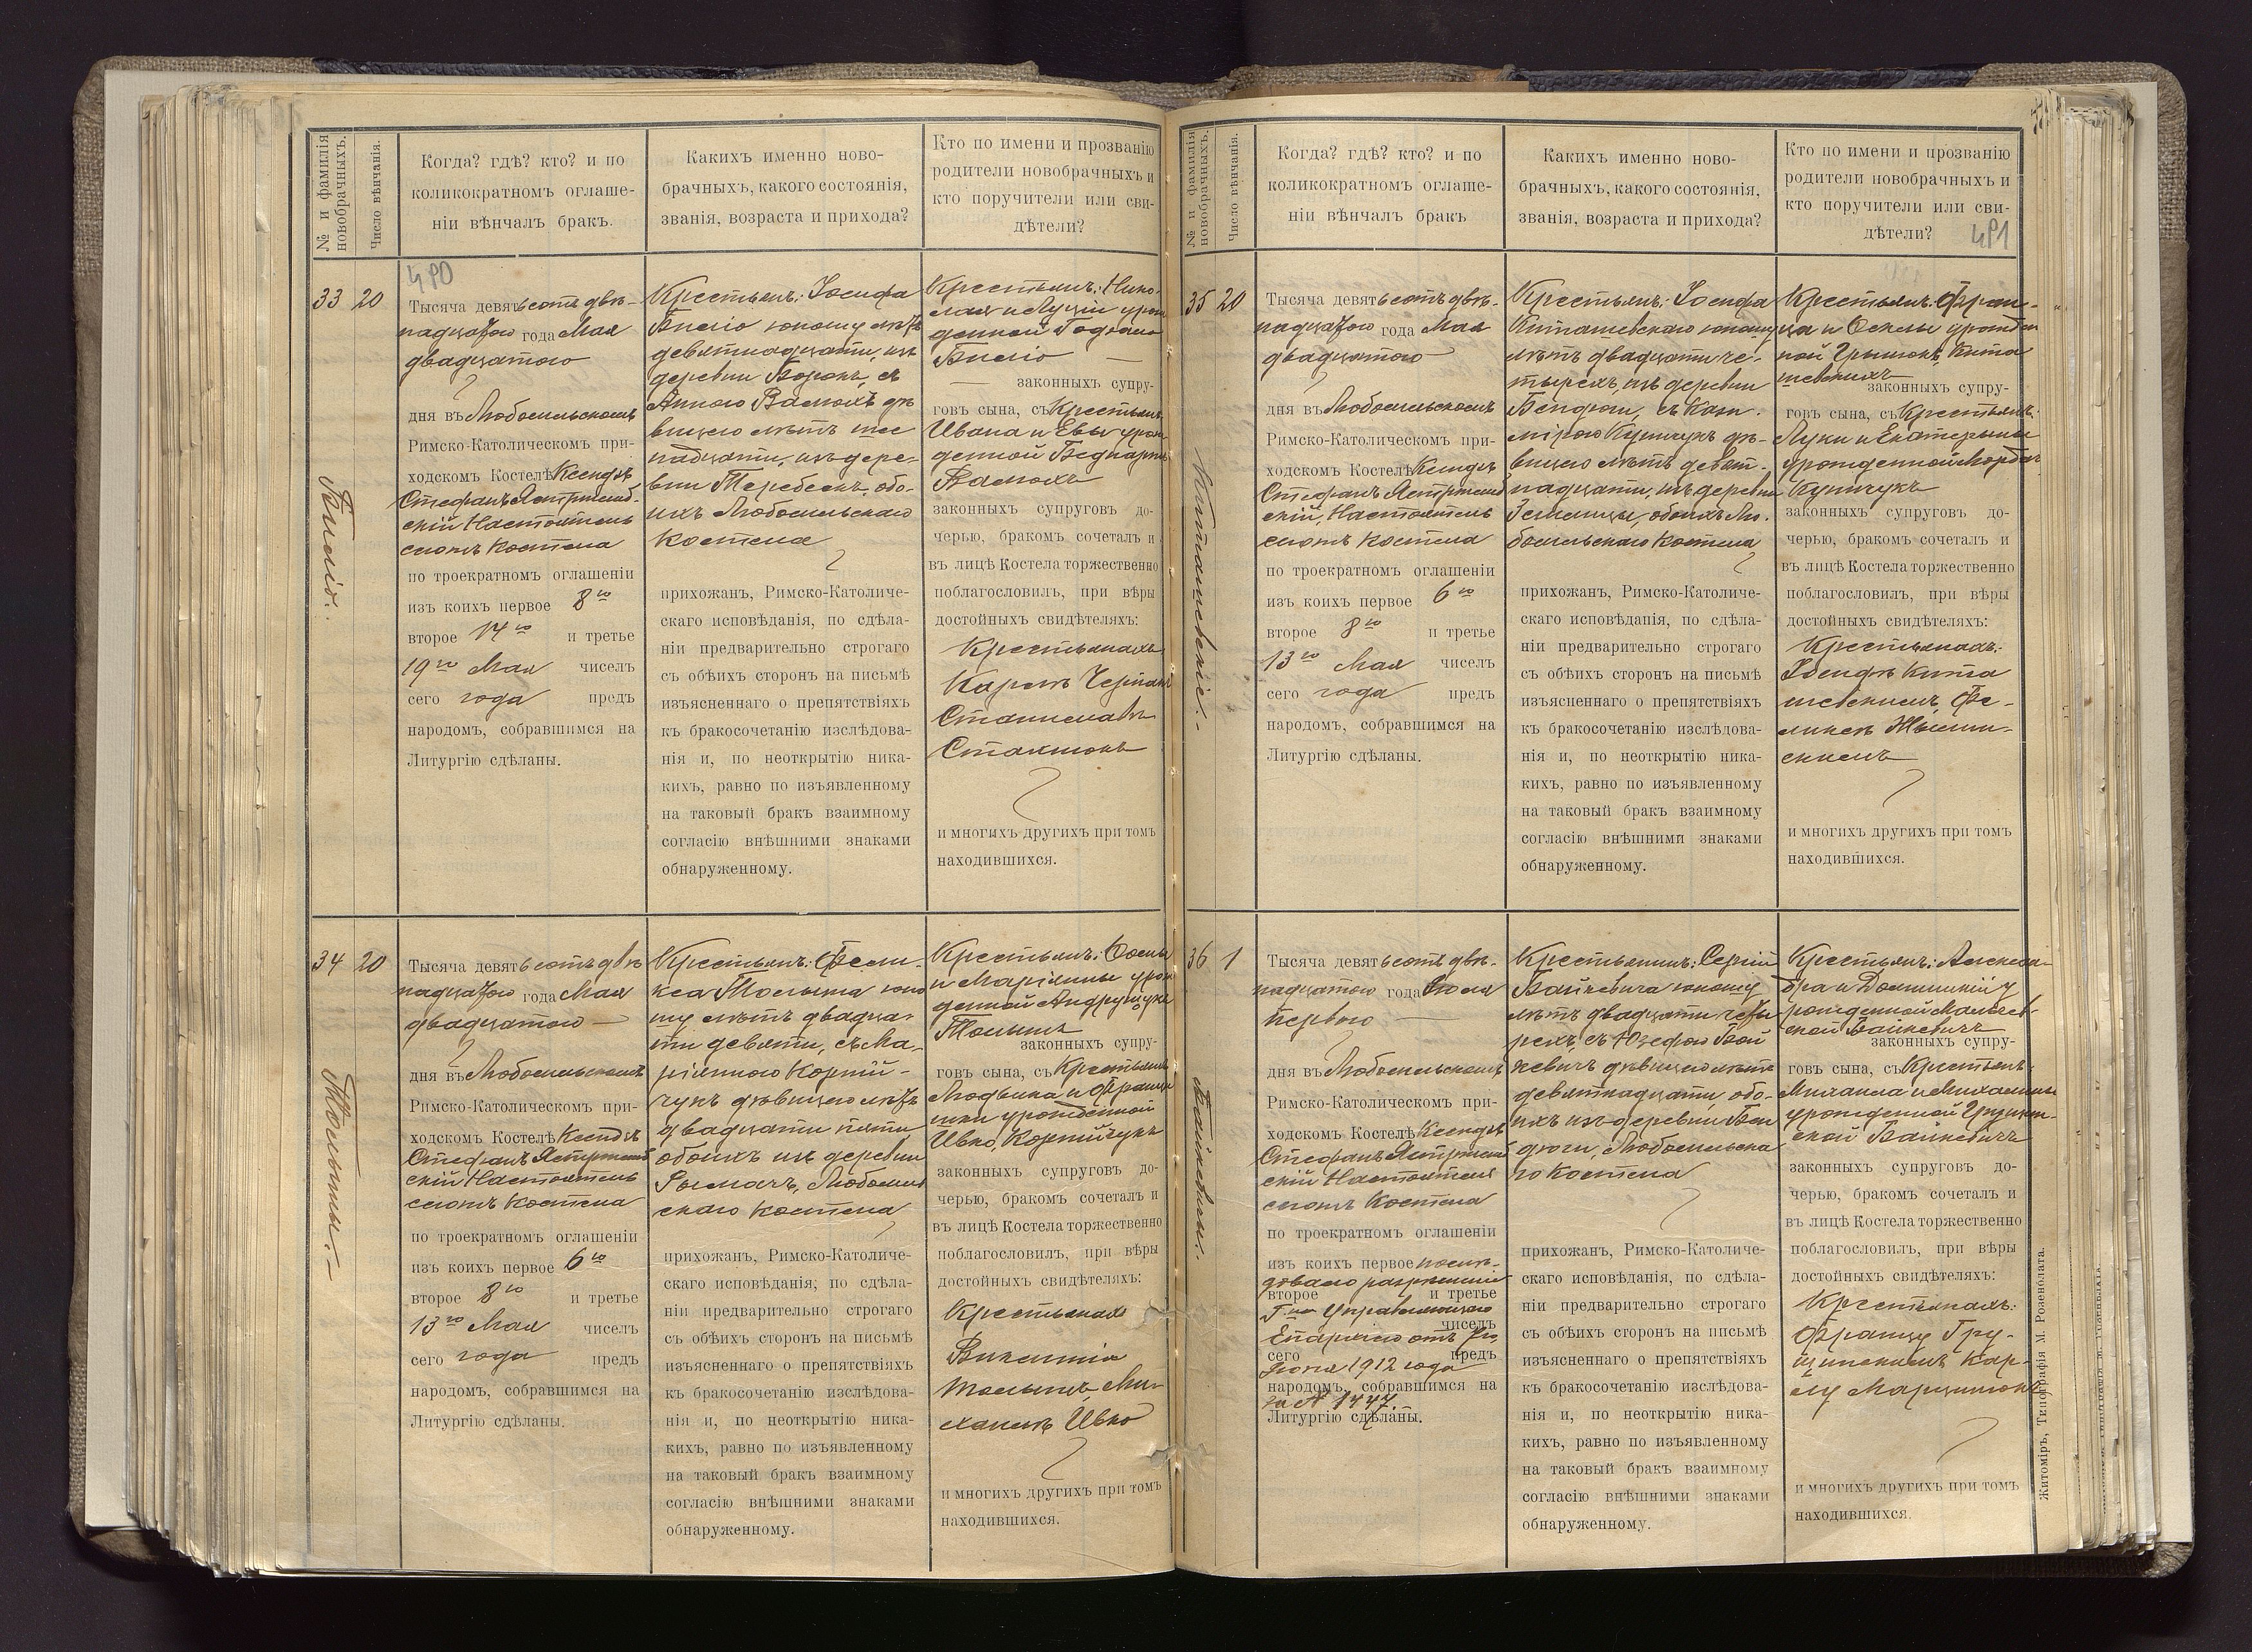 № и фамилія новобрачныхъ.
Число вѣнчанія.
Когда? гдѣ? кто? и по
коликократномъ оглаше-
ніи вѣнчалъ бракъ.
Какихъ именно ново-
брачныхъ, какого состоянія,
званія, возраста и прихода?
Кто по имени и прозванію
родители новобрачныхъ и
кто поручители или сви-
дѣтели?
33
20
490
Тысяча девятьсотъ двѣ-
надцатого года Мая
двадцатого
дня въ Любомльскомъ
Римско-Католическомъ при-
ходскомъ Костелѣ Ксендзъ
Стефанъ Ястржемб-
скій Настоятель
сего Костела
по троекратномъ оглашеніи
изъ коихъ первое 8го
второе 14го и третье
19го Мая чиселъ
сего года предъ
народомъ, собравшимся на
Литургію сдѣланы.
Крестьянъ: Іосифа
юношу лѣтъ
девятнадцати, изъ
деревни съ
Анною дѣ-
вицею лѣтъ шес
надцати, изъ дере-
вни обо-
ихъ Любомльскаго
Костела
прихожанъ, Римско-Католиче-
скаго исповѣданія, по сдѣла-
ніи предварительно строгаго
съ обѣихъ сторонъ на письмѣ
изъясненнаго о препятствіяхъ
къ бракосочетанію изслѣдова-
нія и, по неоткрытію ника-
кихъ, равно по изъявленному
на таковый бракъ взаимному
согласію внѣшними знаками
обнаруженному.
Крестьянъ: Нико-
лая и Луціи урож
денной
законныхъ супру-
говъ сына, съ Крестьянъ
Ивана и Евы урож
денной Беднаржъ
законныхъ супруговъ до-
черью, бракомъ сочеталъ и
въ лицѣ Костела торжественно
поблагословилъ, при вѣры
достойныхъ свидѣтеляхъ:
Крестьянахъ
Станиславъ
и многихъ другихъ при томъ
находившихся.
34
20
Тысяча девятьсотъ двѣ
надцатого года Мая
двадцатого
дня въ Любомльскомъ
Римско-Католическомъ при-
ходскомъ Костелѣ Ксендзъ
Стефанъ Ястржемб
скій Настоятель
сего Костела
по троекратномъ оглашеніи
изъ коихъ первое 6го
второе 8го и третье
13го Мая чиселъ
сего года предъ
народомъ, собравшимся на
Литургію сдѣланы.
Крестьянъ: Фели-
кса юно
шу лѣтъ двадца-
ти девяти, съ Ма-
ріянною Корній-
чукъ дѣвицею лѣтъ
двадцати пяти
обоихъ изъ деревни
Любомль
скаго Костела
прихожанъ, Римско-Католиче-
скаго исповѣданія, по сдѣла-
ніи предварительно строгаго
съ обѣихъ сторонъ на письмѣ
изъясненнаго о препятствіяхъ
къ бракосочетанію изслѣдова-
нія и, по неоткрытію ника-
кихъ, равно по изъявленному
на таковый бракъ взаимному
согласію внѣшними знаками
обнаруженному.
Крестьянъ:
и Маріянны урож
денной Андрущукъ
законныхъ супру-
говъ сына, съ Крестьянъ
Людвика и Францы
шки урожденной
Ивко, Корнійчукъ
законныхъ супруговъ до-
черью, бракомъ сочеталъ и
въ лицѣ Костела торжественно
поблагословилъ, при вѣры
достойныхъ свидѣтеляхъ:
Крестьянахъ
Ми-
хаилъ Ивко
и многихъ другихъ при томъ
находившихся.
№ и фамилія новобрачныхъ.
Число вѣнчанія.
Когда? гдѣ? кто? и по
коликократномъ оглаше-
ніи вѣнчалъ бракъ
Какихъ именно ново-
брачныхъ, какого состоянія,
званія, возраста и прихода?
Кто по имени и прозванію
родители новобрачныхъ и
кто поручители или сви-
дѣтели?
491
35
20
Киташевскіе.
Тысяча девятьсотъ двѣ-
надцатого года Мая
двадцатого
дня въ Любомльскомъ
Римско-Католическомъ при-
ходскомъ Костелѣ Ксендзъ
Стефанъ Ястржемб
скій, Настоятель
сего Костела
по троекратномъ оглашеніи
изъ коихъ первое 6го
второе 8го и третье
13го Мая чиселъ
сего года предъ
народомъ, собравшимся на
Литургію сдѣланы.
Крестьянъ: Іосифа
Киташевскаго юношу
лѣтъ двадцати че-
тырехъ, изъ деревни
Бендюги, съ Кази-
мірою Купчукъ дѣ-
вицею лѣтъ девят-
надцати, изъ деревни
Земляцы, обоихъ Лю-
бомльскаго Костела
прихожанъ, Римско-Католиче-
скаго исповѣданія, по сдѣла-
ніи предварительно строгаго
съ обѣихъ сторонъ на письмѣ
изъясненнаго о препятствіяхъ
къ бракосочетанію изслѣдова-
нія и, по неоткрытію ника-
кихъ, равно по изъявленному
на таковый бракъ взаимному
согласію внѣшними знаками
обнаруженному.
Крестьянъ: Фран-
ца и Фёклы урожден
ной Кита
шевскихъ
законныхъ супру-
говъ сына, съ Крестьянъ:
Луки и Екатерины
урожденной
Купчукъ
законныхъ супруговъ до-
черью, бракомъ сочеталъ и
въ лицѣ Костела торжественно
поблагословилъ, при вѣры
достойныхъ свидѣтеляхъ:
Крестьянахъ:
Іосифъ Кита
шевскимъ, Фе-
ликсъ
и многихъ другихъ при томъ
находившихся.
36
1
Байкевичи.
Тысяча девятьсотъ двѣ-
надцатого года Іюля
перваго
дня въ Любомльскомъ
Римско-Католическомъ при-
ходскомъ Костелѣ Ксендзъ
Стефанъ Ястржемб
скій Настоятель
сего Костела
по троекратномъ оглашеніи
изъ коихъ первое послѣ-
доваго разрѣшенія
второе и третье
Гна Управляющаго
чиселъ
Епархіею отъ
сего предъ
Іюня 1912 года
народомъ, собравшимся на
за № 1447.
Литургію сдѣланы.
Крестьянинъ: Сергій
Байкевича юношу
лѣтъ двадцати четы
рехъ, съ Юзефою Бай
кевичъ дѣвицею лѣтъ
девятнадцати, обо-
ихъ изъ деревни Бен
дюги, Любомльска
го Костела
прихожанъ, Римско-Католиче-
скаго исповѣданія, по сдѣла-
ніи предварительно строгаго
съ обѣихъ сторонъ на письмѣ
изъясненнаго о препятствіяхъ
къ бракосочетанію изслѣдова-
нія и, по неоткрытію ника-
кихъ, равно по изъявленному
на таковый бракъ взаимному
согласію внѣшними знаками
обнаруженному.
Крестьянъ: Алекса-
ндра и Доминикіи у
рожденной
Байкевичъ
законныхъ супру-
говъ сына, съ Крестьянъ:
Михаила и Михалины
урожденной Грущин-
ской Байкевичъ
законныхъ супруговъ до-
черью, бракомъ сочеталъ и
въ лицѣ Костела торжественно
поблагословилъ, при вѣры
достойныхъ свидѣтеляхъ:
Крестьянахъ:
Францу Гру-
щинскимъ Кар-
лу
и многихъ другихъ при томъ
находившихся.
Житоміръ, Типографія М. Розенблата.